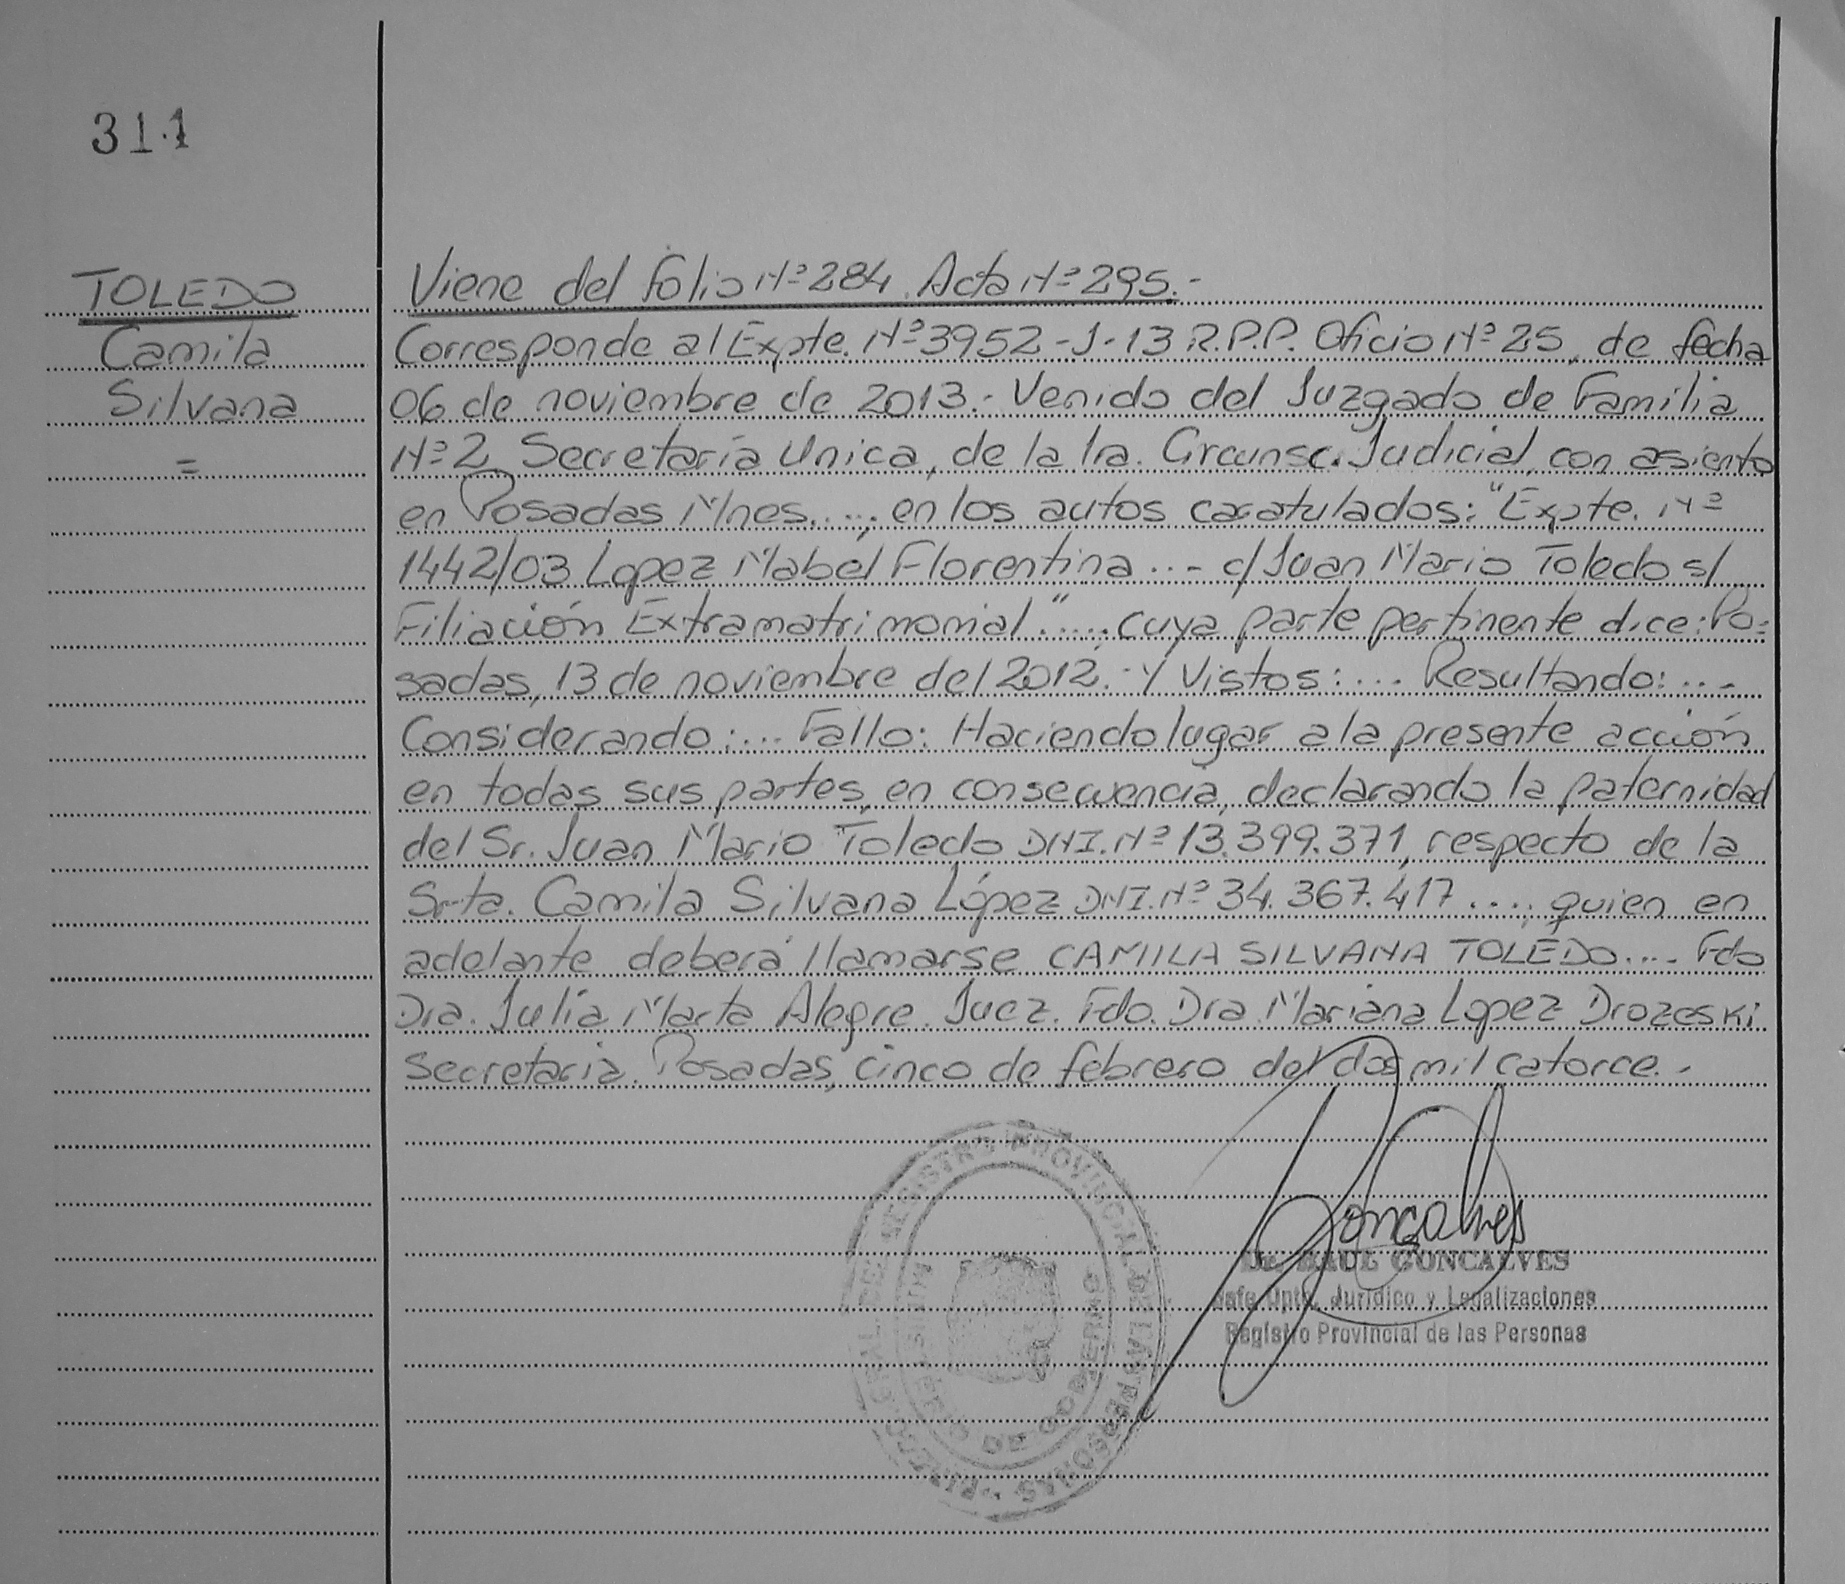 311
TOLEDO
Camila
Silvana
=
Viene del folio Nº 284 Acta Nº 295.-
Corresponde al Expte. Nº 3952-J-13 R.P.P. Oficio Nº 25, de fecha
06 de noviembre de 2013.- Venido del Juzgado de Familia
Nº 2, Secretaría Unica, de la 1ra. Circunsc. Judicial, con asiento
en Posadas Mnes....; en los autos caratulados: "Expte. Nº
1442/03 Lopez Mabel Florentina ...- c/ Juan Mario Toledo s/
Filiación Extramatrimonial"..... cuya parte pertinente dice: Po=
sadas, 13 de noviembre del 2012.- Y Vistos:.... Resultando:...-
Considerando:.... Fallo: Haciendo lugar a la presente acción
en todas sus partes, en consecuencia, declarando la paternidad
del Sr. Juan Mario Toledo DNI. Nº 13.399.371, respecto de la
Srta. Camila Silvana López DNI. Nº 34.367.417 ...., quien en
adelante deberá llamarse CAMILA SILVANA TOLEDO.... Fdo
Dra. Julia Marta Alegre. Juez. Fdo. Dra Mariana Lopez Drozeski
Secretaria. Posadas, cinco de febrero del dos mil catorce.-
REGISTRO PROVINCIAL DE LAS PERSONAS
MINISTERIO DE GOBIERNO
Goncalves
Dr. RAUL GONCALVES
Jefe Dpto. Jurídico y Legalizaciones
Registro Provincial de las Personas